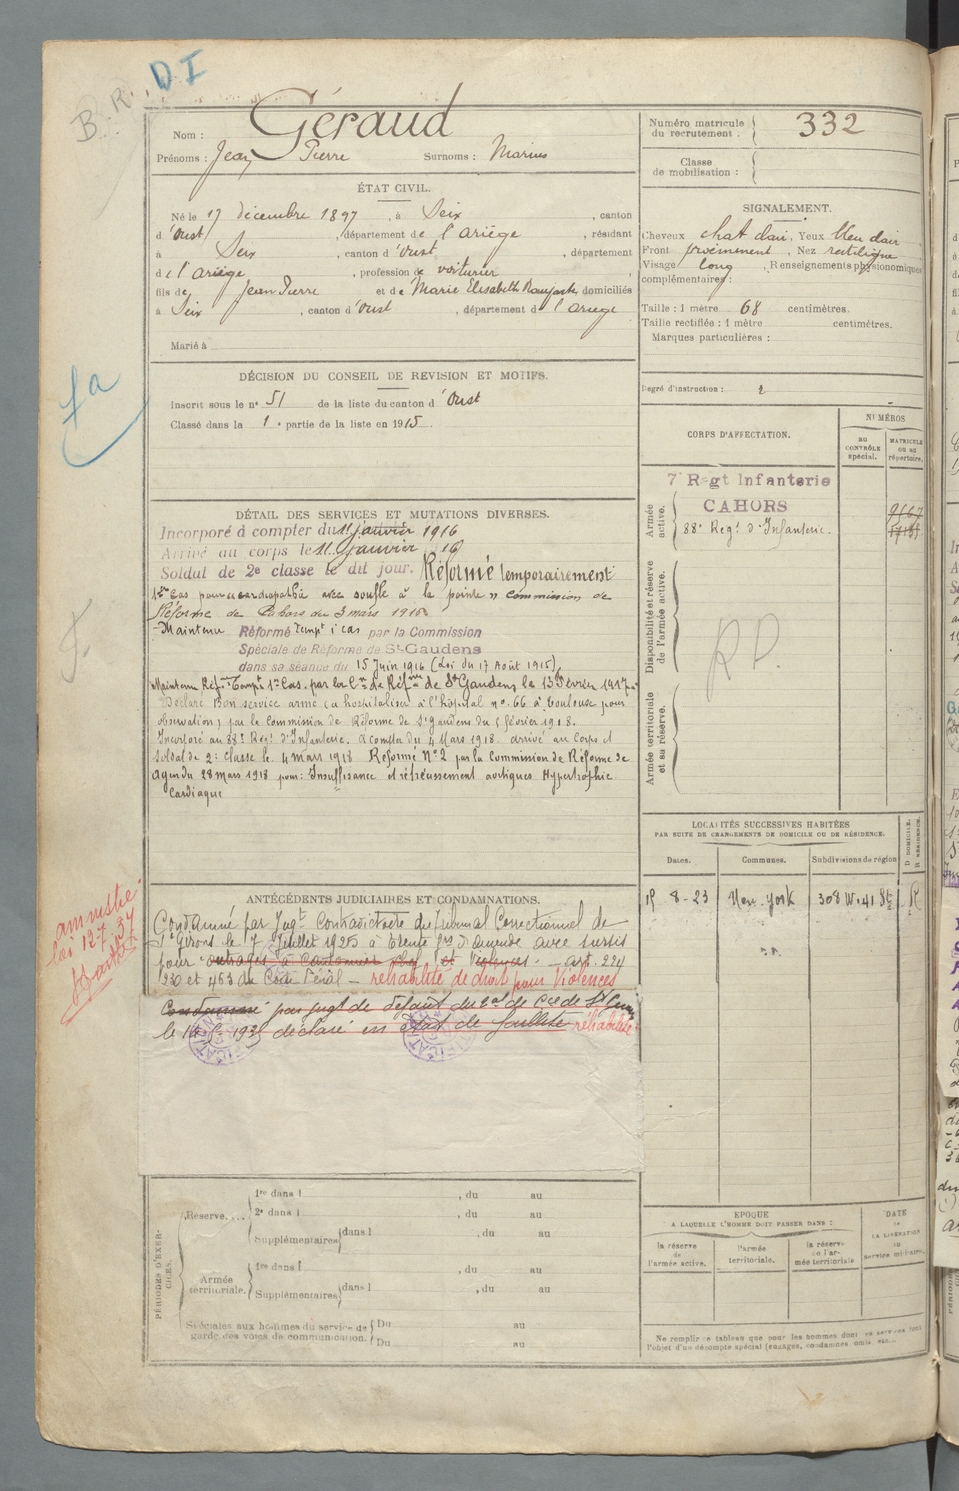 B. R. D I
Nom : Géraud
Prénoms : Jean Pierre Surnoms : Marius
Numéro matricule du recrutement : 332
Classe de mobilisation :
ÉTAT CIVIL.
Né le 17 décembre 1897, à Seix, canton
d'Oust, département de l'Ariège, résidant
à Seix, canton d'Oust, département
de l'Ariège, profession de voiturier
fils de Jean Pierre et de Marie Elisabeth domiciliés
à Seix, canton d'Oust, département d l'Ariège
Marié à
SIGNALEMENT.
Cheveux chat clair, Yeux bleu clair
Front proéminent, Nez rectiligne
Visage long, Renseignements physionomiques
complémentaires :
Taille : 1 mètre 68 centimètres.
Taille rectifiée : 1 mètre centimètres.
Marques particulières :
Degré d'instruction : 2
fa
DÉCISION DU CONSEIL DE REVISION ET MOTIFS.
Inscrit sous le n° 51 de la liste du canton d'Oust
Classé dans la 1e partie de la liste en 1915.
CORPS D'AFFECTATION.
NUMÉROS
AU CONTRÔLE spécial.
MATRICULE OU AU répertoire.
Armée active.
7e Regt Infanterie
CAHORS
88e Regt d'Infanterie.
Disponibilité et réserve de l'armée active.
RD.
Armée territoriale et sa réserve.
DÉTAIL DES SERVICES ET MUTATIONS DIVERSES.
Incorporé à compter du 11 janvier 1916
Arrivé au corps le 11 janvier 16
Soldat de 2e classe le dit jour. Réformé temporairement
1er cas pour cardiopathie avec souffle à la pointe » commission de
Réforme de Cahors du 3 mars 1916
- Maintenu Réformé Tempt 1 cas par la Commission
Spéciale de Réforme de St-Gaudens
dans sa séance du 15 Juin 1916 (Loi du 17 Août 1915),
Maintenu Réf. Tempt 1er Cas. par la Con de Réfme de St Gaudens le 13 Février 1917
Déclaré Bon service armé (à hospitaliser à l'hôpital n° 66 à Toulouse pour
observation) par la Commission de Réforme de St Gaudens du 5 février 1918.
Incorporé au 88e Régt d'Infanterie. à compter du 4 Mars 1918. arrivé au corps et
Soldat de 2e classe le 4 mars 1918 Réformé N°2 par la Commission de Réforme de
Agen du 28 mars 1918 pour : Insuffisance et rétrécissement aortiques Hypertrophie
Cardiaque
LOCALITÉS SUCCESSIVES HABITÉES
PAR SUITE DE CHANGEMENTS DE DOMICILE OU DE RÉSIDENCE.
Dates. Communes. Subdivisions de région D DOMICILE. R RÉSIDENCE.
8-23 New-York 308 W. 41 St R
ANTÉCÉDENTS JUDICIAIRES ET CONDAMNATIONS.
Condamné par Jugt Contradictoire du Tribunal Correctionnel de
St Girons le 7 Juillet 1925 à Trente frs d'Amende avec sursis
pour outrages à et Violences. - art. 224
230 et 463 du Code Pénal - réhabilité de droit pour Violences
Condamné par jugt de défaut du de Cce de St
le déclaré en état de faillite réhabilité
amnistie
loi 12 7 37
PÉRIODES D'EXERCICES.
Réserve....
1re dans l , du au
2e dans l , du au
Supplémentaires dans l , du au
Armée territoriale.
1re dans l , du au
Supplémentaires dans l , du au
Spéciales aux hommes du service de garde des voies de communication.
Du au
Du au
EPOQUE
A LAQUELLE L'HOMME DOIT PASSER DANS :
la réserve de l'armée active.
l'armée territoriale.
la réserve de l'armée territoriale
DATE DE LA LIBÉRATION DU service militaire.
Ne remplir ce tableau que pour les hommes dont les services font
l'objet d'un décompte spécial (engagés, condamnés, omis, etc...